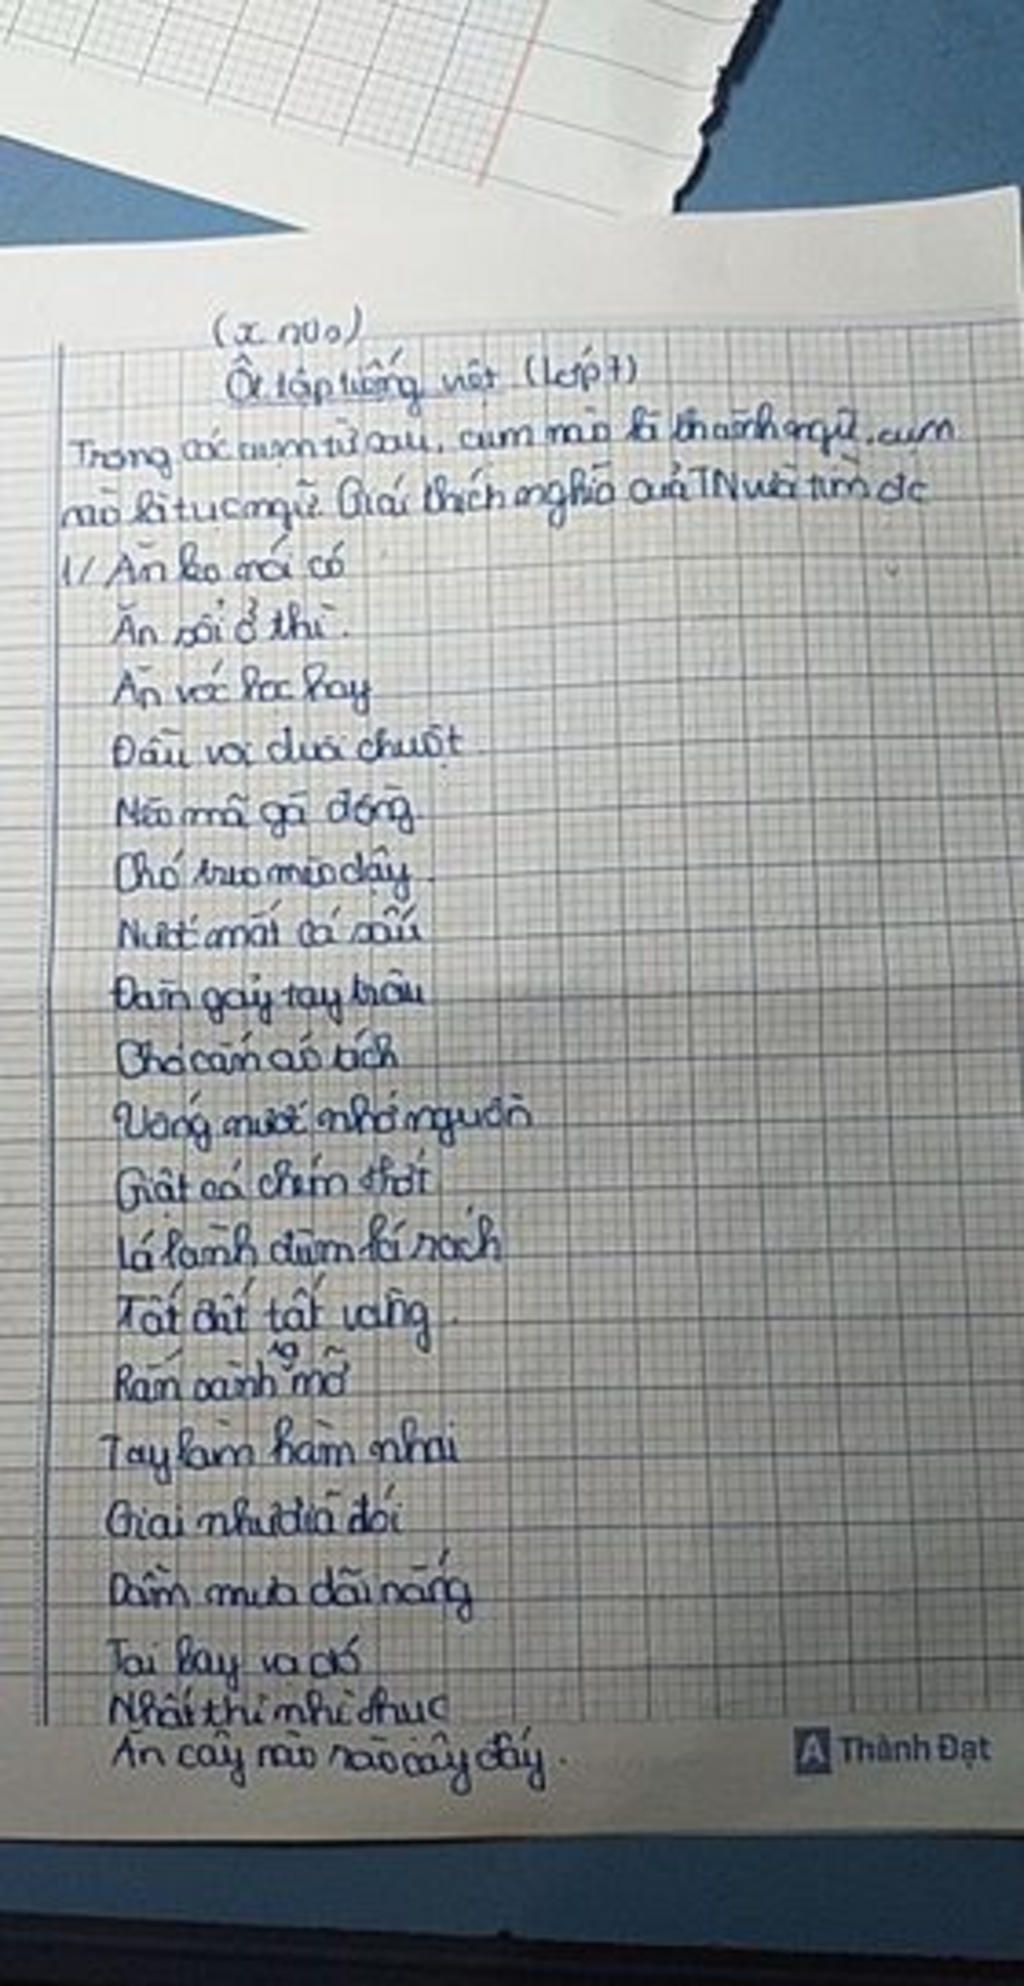 Ôt tập tiếng việt (Lớp 7)
Trong các cụm từ sau, cụm nào là thành ngữ, cụm
nào là tục ngữ. Giải thích nghĩa của TN vừa tìm đc
1/ Ăn ko nói có
Ăn xổi ở thì.
Ăn vóc học hay
Đầu voi đuôi chuột
Mèo mả gà đồng
Chó treo mèo đậy.
Nước mắt cá sấu
Đàn gảy tay trâu
Chó cắn áo rách
Uống nước nhớ nguồn
Giật cá chém thớt
Lá lành đùm lá rách
Tấc đất tấc vàng.
Rán sành ra mỡ
Tay làm hàm nhai
Giai như đỉa đói
Dầm mưa dãi nắng
Tai bay vạ gió
Nhất thì nhì thục
Ăn cây nào rào cây đấy.
Thành Đạt